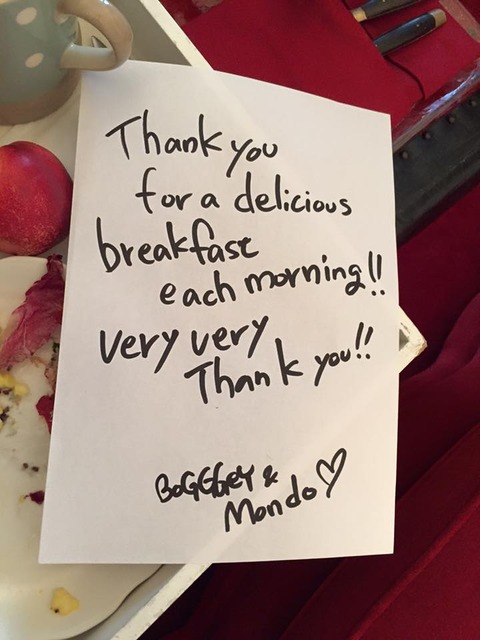 Thank you
for a delicious
breakfast
each morning!!
very very
Thank you!!
BoGGGey &
Mondo♡